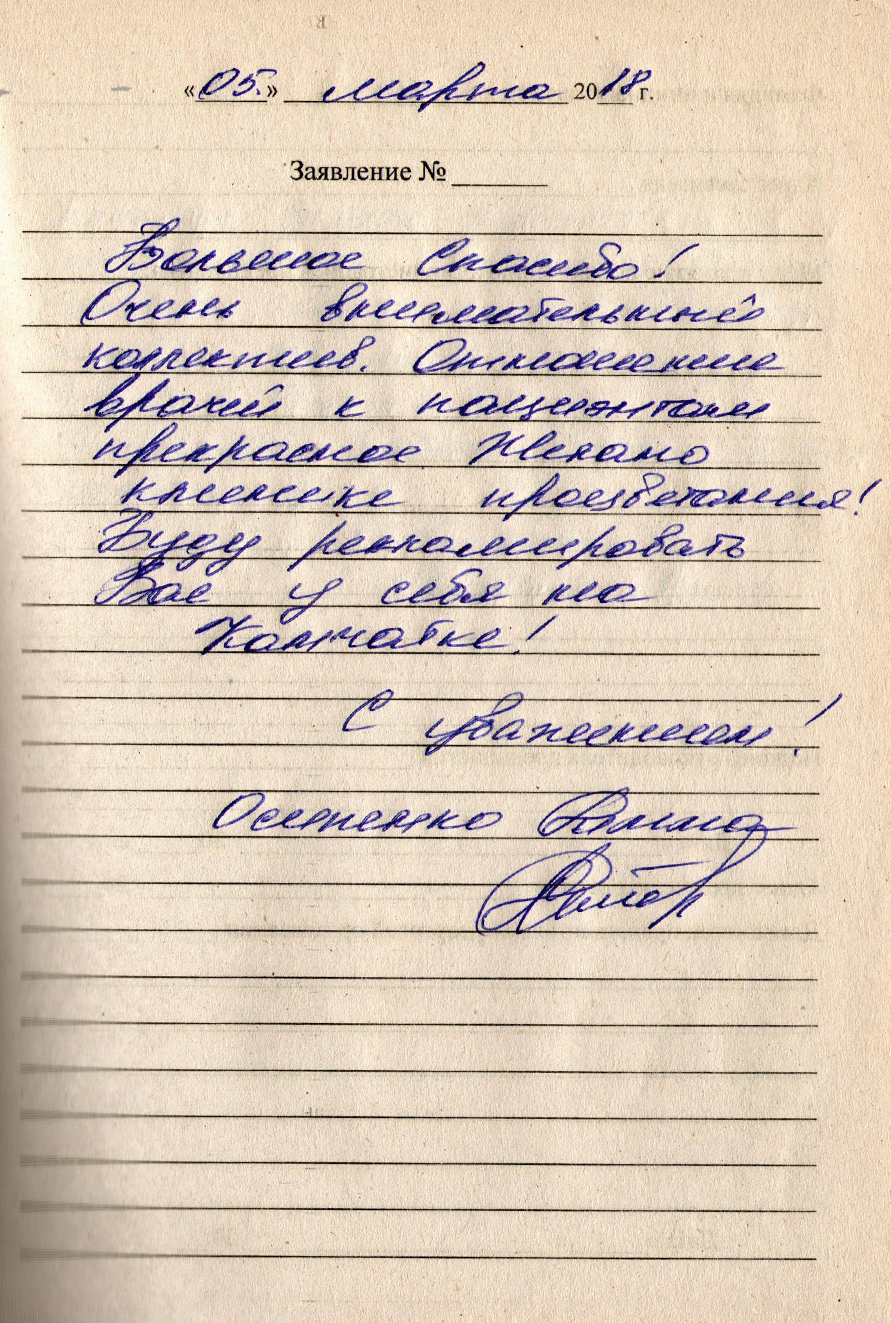 «05.» марта 2018 г.
Заявление №
Большое Спасибо!
Очень внимательный
коллектив. Отношение
врачей к пациентам
прекрасное Желаю
клинике процветания!
Буду рекламировать
Вас у себя на
Камчатке!
С уважением!